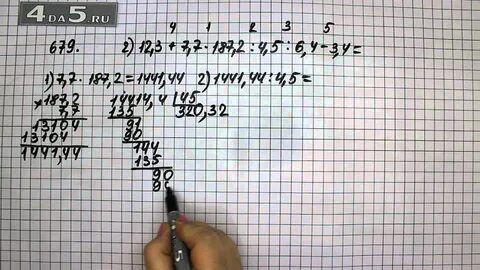 4DA5.RU
4 1 2 3 5
679. 2) 12,3 + 7,7 · 187,2 : 4,5 : 6,4 - 3,4 =
1) 7,7 · 187,2 = 1441,44 2) 1441,44 : 4,5 =
×187,2 14414,4 | 45
7,7 135 320,32
13104 91
13104 90
1441,44 144
135
90
9